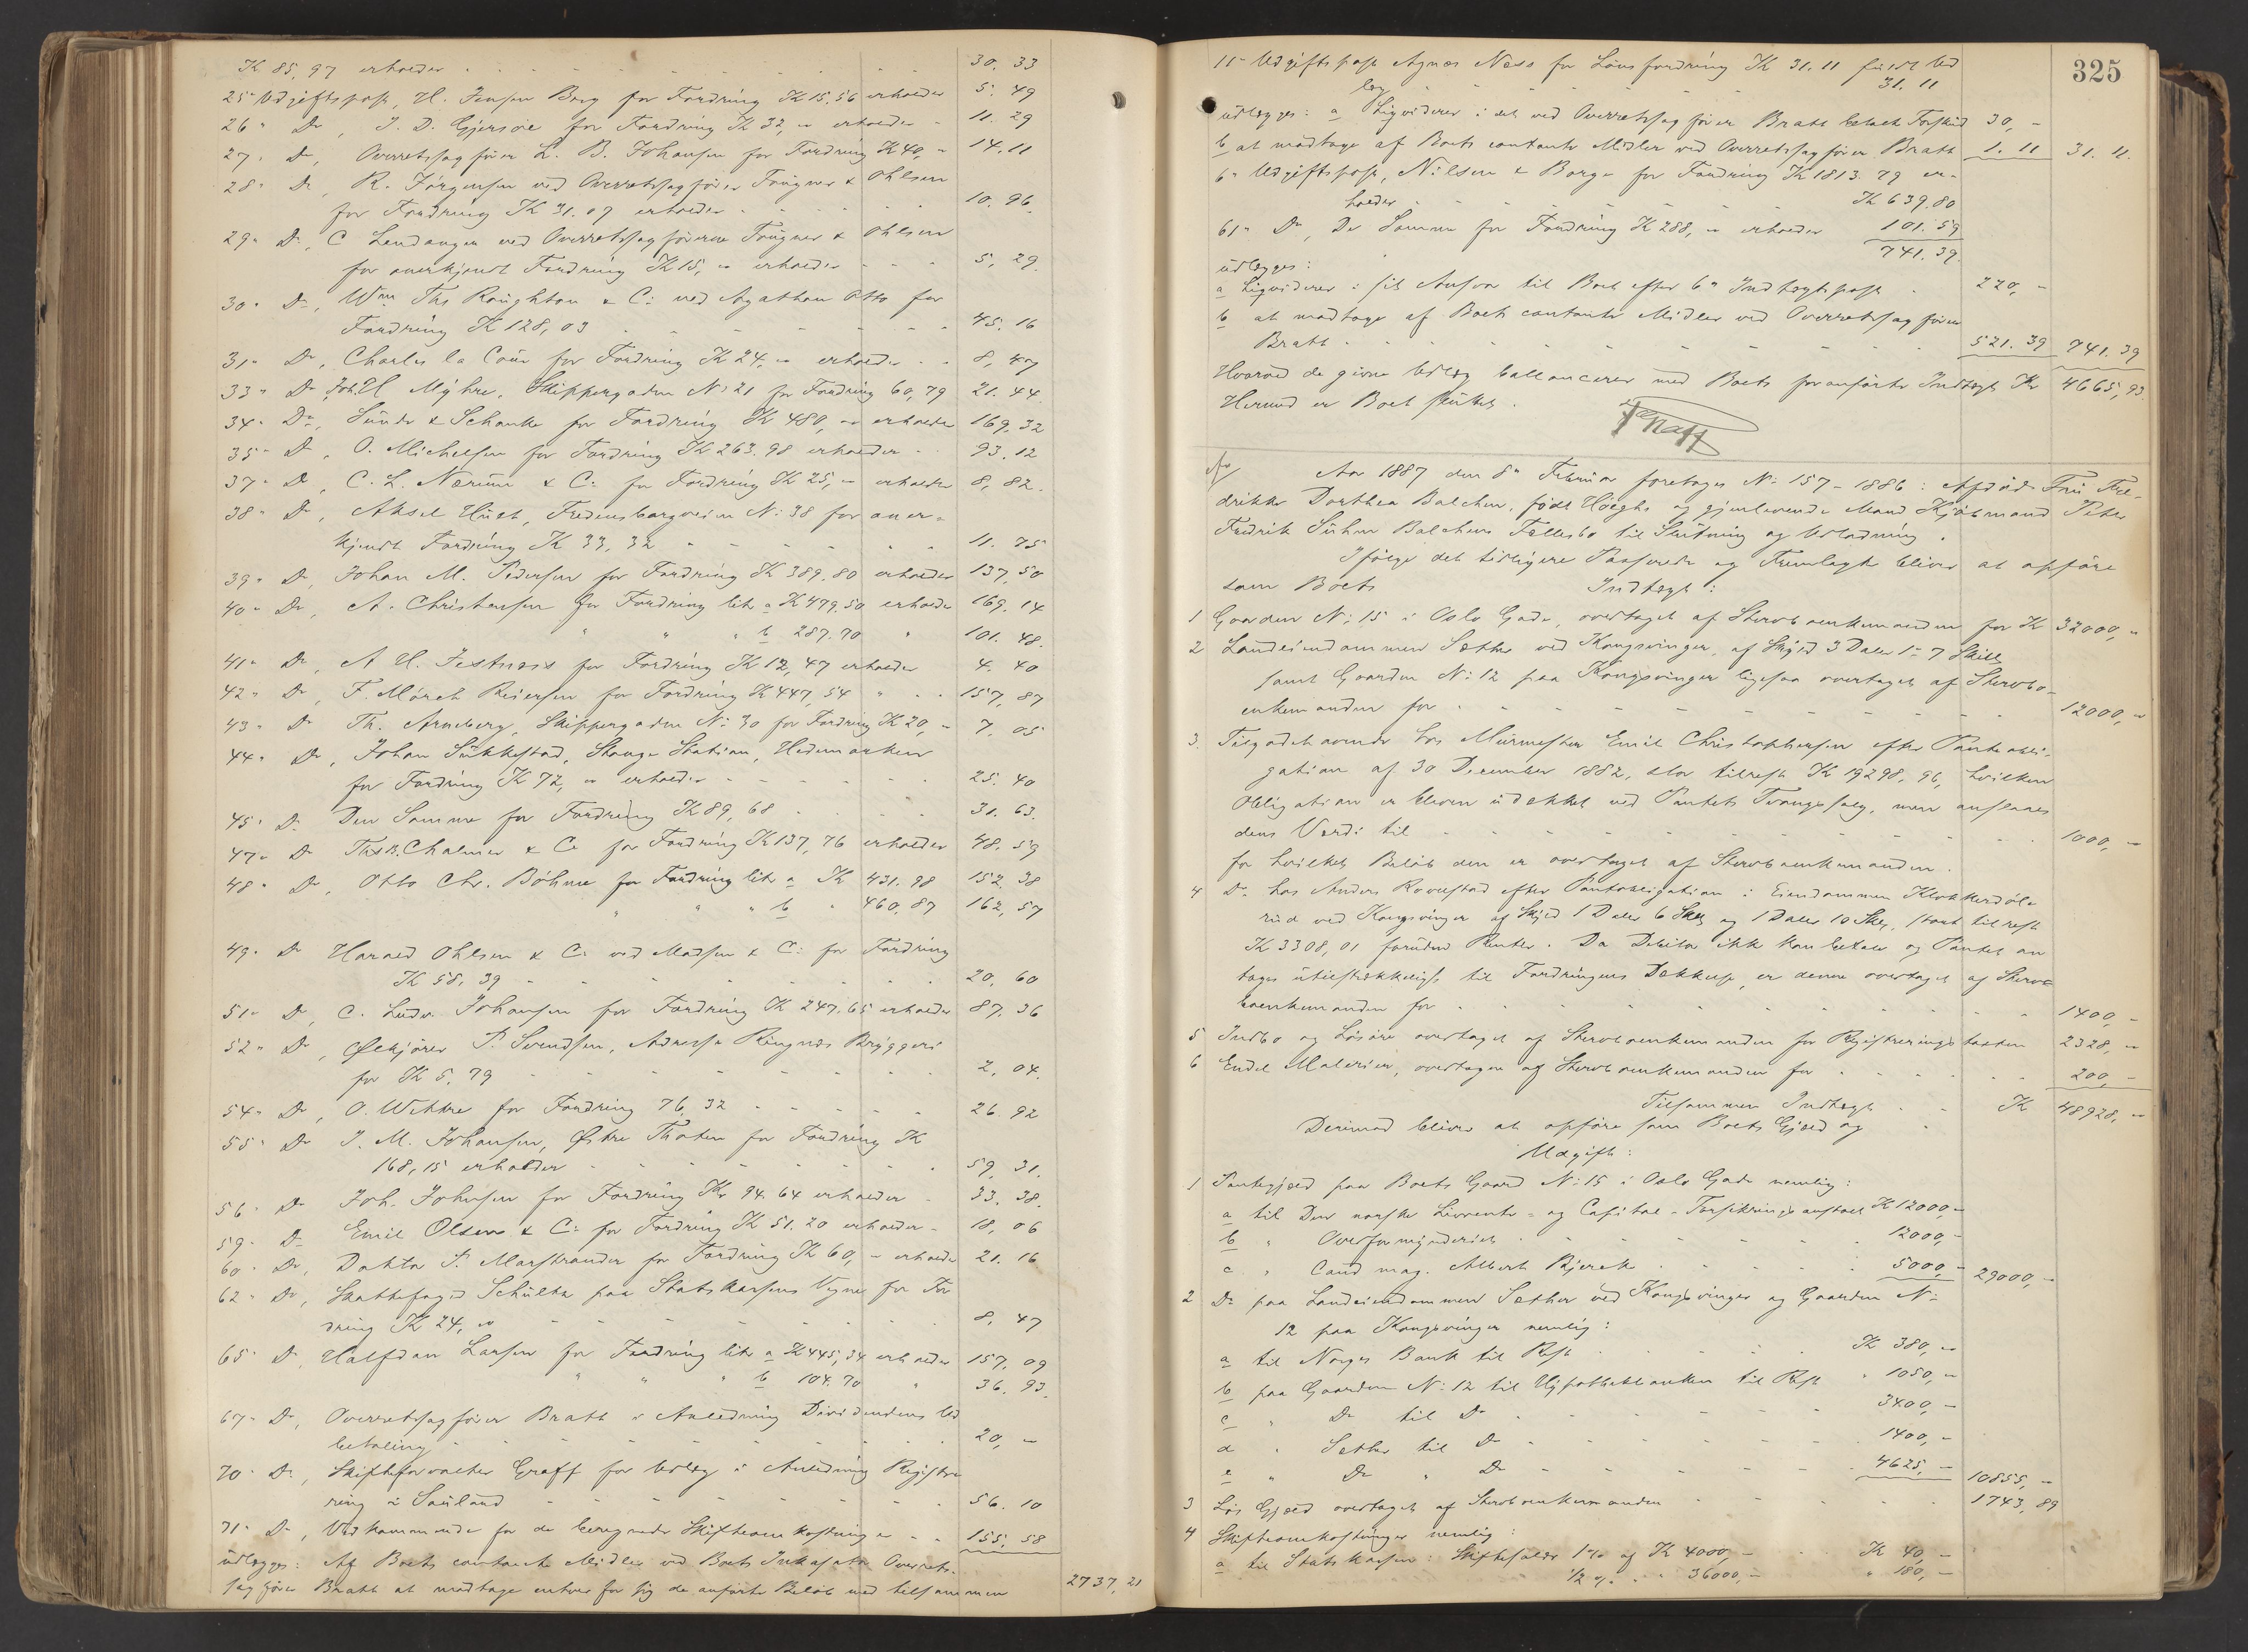 K 85,97 erholder 30. 33
25 Udgiftspost, H. Jensen Borg for Fordring K 15.56 erholder 5. 49
26 " Do, J. D. Gjersøe for Fordring K 32, " erholder 11. 29
27 " Do, Overretssagfører L. B. Johansen for Fordring K 40, " 14. 11
28 " Do, R. Jørgensen ved Overretssagfører Tougner & Ohlsen
for Fordring K 31.07 erholder 10. 96
29 " Do, C Lendangen ved Overretssagførerne Tougner & Ohlsen
for anerkjendt Fordring K 15, " erholder 5, 29.
30 " Do, Wm Ths Roughton & Co: ved Agathon Otto for
Fordring K 128,03 45. 16
31 " Do, Charles la Cour for Fordring K 24, " erholder 8, 47
33 " Do Joh. H Myhre, Skippergaden No: 21 for Fordring 60,79 21. 44.
34 " Do, Sunde & Schanke for Fordring K 480, " erholder 169. 32
35 " Do, O. Michelsen for Fordring K 263.98 erholder 93. 12
37 " Do, C. L. Nærum & Co: for Fordring K 25, " erholder 8, 82.
38 " Do, Aksel Hust, Fredensborgveien No: 38 for aner-
kjendt Fordring K 33,32 11. 75
39 " Do, Johan M. Pedersen for Fordring K 389.80 erholder 137, 50
40 " Do, A. Christensen for Fordring litr a K 479.50 erholder 169. 14
" " " b 287.70 " 101. 48.
41 " Do, A H. Festnæss for Fordring K 12,47 erholder 4. 40
42 " Do, F. Mørch Reiersen for Fordring K 447,54 " 157, 87
43 " Do Th. Arneberg, Skippergaden No: 30 for Fordring K 20, - 7. 05
44 " Do, Johan Sukkestad, Stange Station, Hedemarken
for Fordring K 72, " erholder 25. 40
45 " Do Den Samme for Fordring K 89,68 31. 63.
47 " Do Ths B. Chalmer & Co for Fordring K 137,76 erholder 48. 59
48 " Do, Otto Chr. Bøhme for Fordring litr a K 431.98 152. 38
" " " b " 460,87 162, 57
49 " Do Harald Ohlsen & Co: ved Madsen & Co: for Fordring
K 58,39 20, 60
51 " Do, C. Ludv. Johansen for Fordring K 247.65 erholder 87. 36
52 " Do, Ølkjører P. Svendsen, Adresse Ringnæs Bryggeri
for K 5,79 2, 04.
54 " Do, O. Withre for Fordring 76,32 26. 92
55 " Do J. M. Johansen, Østre Thoten for Fordring K
168,15 erholder 59. 31.
56 " Do Joh. Johnsen for Fordring Kr 94.64 erholder 33. 38.
59 " Do Emil Olsen & Co: for Fordring K 51.20 erholder 18, 06
60 " Do, Doktor P. Marstrander for Fordring K 60, - erholder 21. 16
62 " Do, Skattefoged Schultz paa Statskassens Vegne for For
dring K 24, " 8, 47
65 " Do, Halfdan Larsen for Fordring litr a K 445,34 erholder 157. 09
" " " b 104.70 " 36. 93.
67 " Do, Overretssagfører Bratt i Anledning Dividendens Ud
betaling 20, "
70 " Do, Skifteforvalter Graff for Udlæg i Anledning Registre
ring i Sauland 56. 10
71 " Do, Vedkommende for de beregnede Skifteomkostninger 155. 58
udlægges: Af Boets contante Midler ved Boets Inkassator Overrets-
sagfører Bratt at modtage enhver for sig de anførte Beløb med tilsammen 2737,21
325
11 " Udgiftspost Agnes Næss for Lønsfordring K 31.11 fuldt Ud
læg 31.11
udlægges: a Liqviderer i det ved Overretssagfører Bratt betalt Forskud 30, -
b at modtage af Boets contante Midler ved Overretssagfører Bratt 1. 11 31. 11.
6 " Udgiftspost, Nilsen & Borge for Fordring K 1813.79 er-
holder K 639.80
61 " Do, De Samme for Fordring K 288, " erholder 101.59
741.39.
udlægges:
a Liqviderer i sit Ansvar til Boet efter 6 " Indtægtspost 220, -
b at modtage af Boets contante Midler ved Overretssagfører
Bratt 521. 39 741. 39
Hvorved de givne Udlæg ballancerer med Boets foranførte Indtægt Kr 4665,93.
Hermed er Boet sluttet.
Graff
Aar 1887 den 8 " Februar foretages No: 157-1886: Afdøde Fru Fre-
drikke Dorthea Balchen, født Høegh, og gjenlevende Mand Kjøbmand Peter
Fredrik Suhm Balchens Fællesbo til Slutning og Udlodning.
Ifølge det tidligere Passerede og Fremlagte bliver at opføre
som Boets Indtægt:
1 Gaarden No: 15 i Oslo Gade, overtaget af Stervboenkemanden for K 32000, "
2 Landeiendommen Sæther ved Kongsvinger, af Skyld 3 Daler 1 - 7 Skill
samt Gaarden No: 12 paa Kongsvinger ligesaa overtaget af Stervbo-
enkemanden for 12000, "
3. Tilgodehavende hos Murmester Emil Christophersen efter Panteobli-
gation af 30 December 1882, stor tilrest K 19298,96, hvilken
Obligation er bleven udækket ved Pantets Tvangssalg, men ansaaes
dens Værdi til 1000, "
for hvilket Beløb den er overtaget af Stervboenkemanden.
4 Do hos Anders Rovestad efter Panteobligation i Eiendommen Klokkerdøle-
rud ved Kongsvinger af Skyld 1 Daler 6 Skill og 1 Daler 10 Skill, stort tilrest
K 3308,01 foruden Renter. Da Debitor ikke kan betale og Pantet an
tages utilstrækkeligt til Fordringens Dækkelse, er denne overtaget af Sterv-
boenkemanden for 1400, -
5 Indbo og Løsøre overtaget af Stervboenkemanden for Registreringstaxten 2328, "
6 Endel Malerier, overtagen af Stervboenkemanden for 200, -
Tilsammen Indtægt K 48928, "
Derimod bliver at opføre som Boets Gjæld og
Udgift:
1 Pantegjæld paa Boets Gaard No: 15 i Oslo Gade nemlig:
a til Den norske Livrente- og Capital-Forsikringsanstalt K 12000, -
b " Overformynderiet 12000, -
c " Cand mag. Albert Bjerck 5000, - 29000, -
2 Do paa Landeiendommen Sæther ved Kongsvinger og Gaarden No:
12 paa Kongsvinger nemlig:
a til Norges Bank til Rest K 380, "
b paa Gaarden No: 12 til Hypothekbanken til Rest " 1050, "
c " Do til Do 3400, -
d " Sæther til Do 1400, -
e " Do " Do 4625, - 10855, -
3 Løs Gjæld overtaget af Stervboenkemanden 1743, 89
4 Skifteomkostninger nemlig:
a til Statskassen: Skiftesalær 1 % af K 4000, - K 40, -
1/2 % " " 36000, - " 180, -